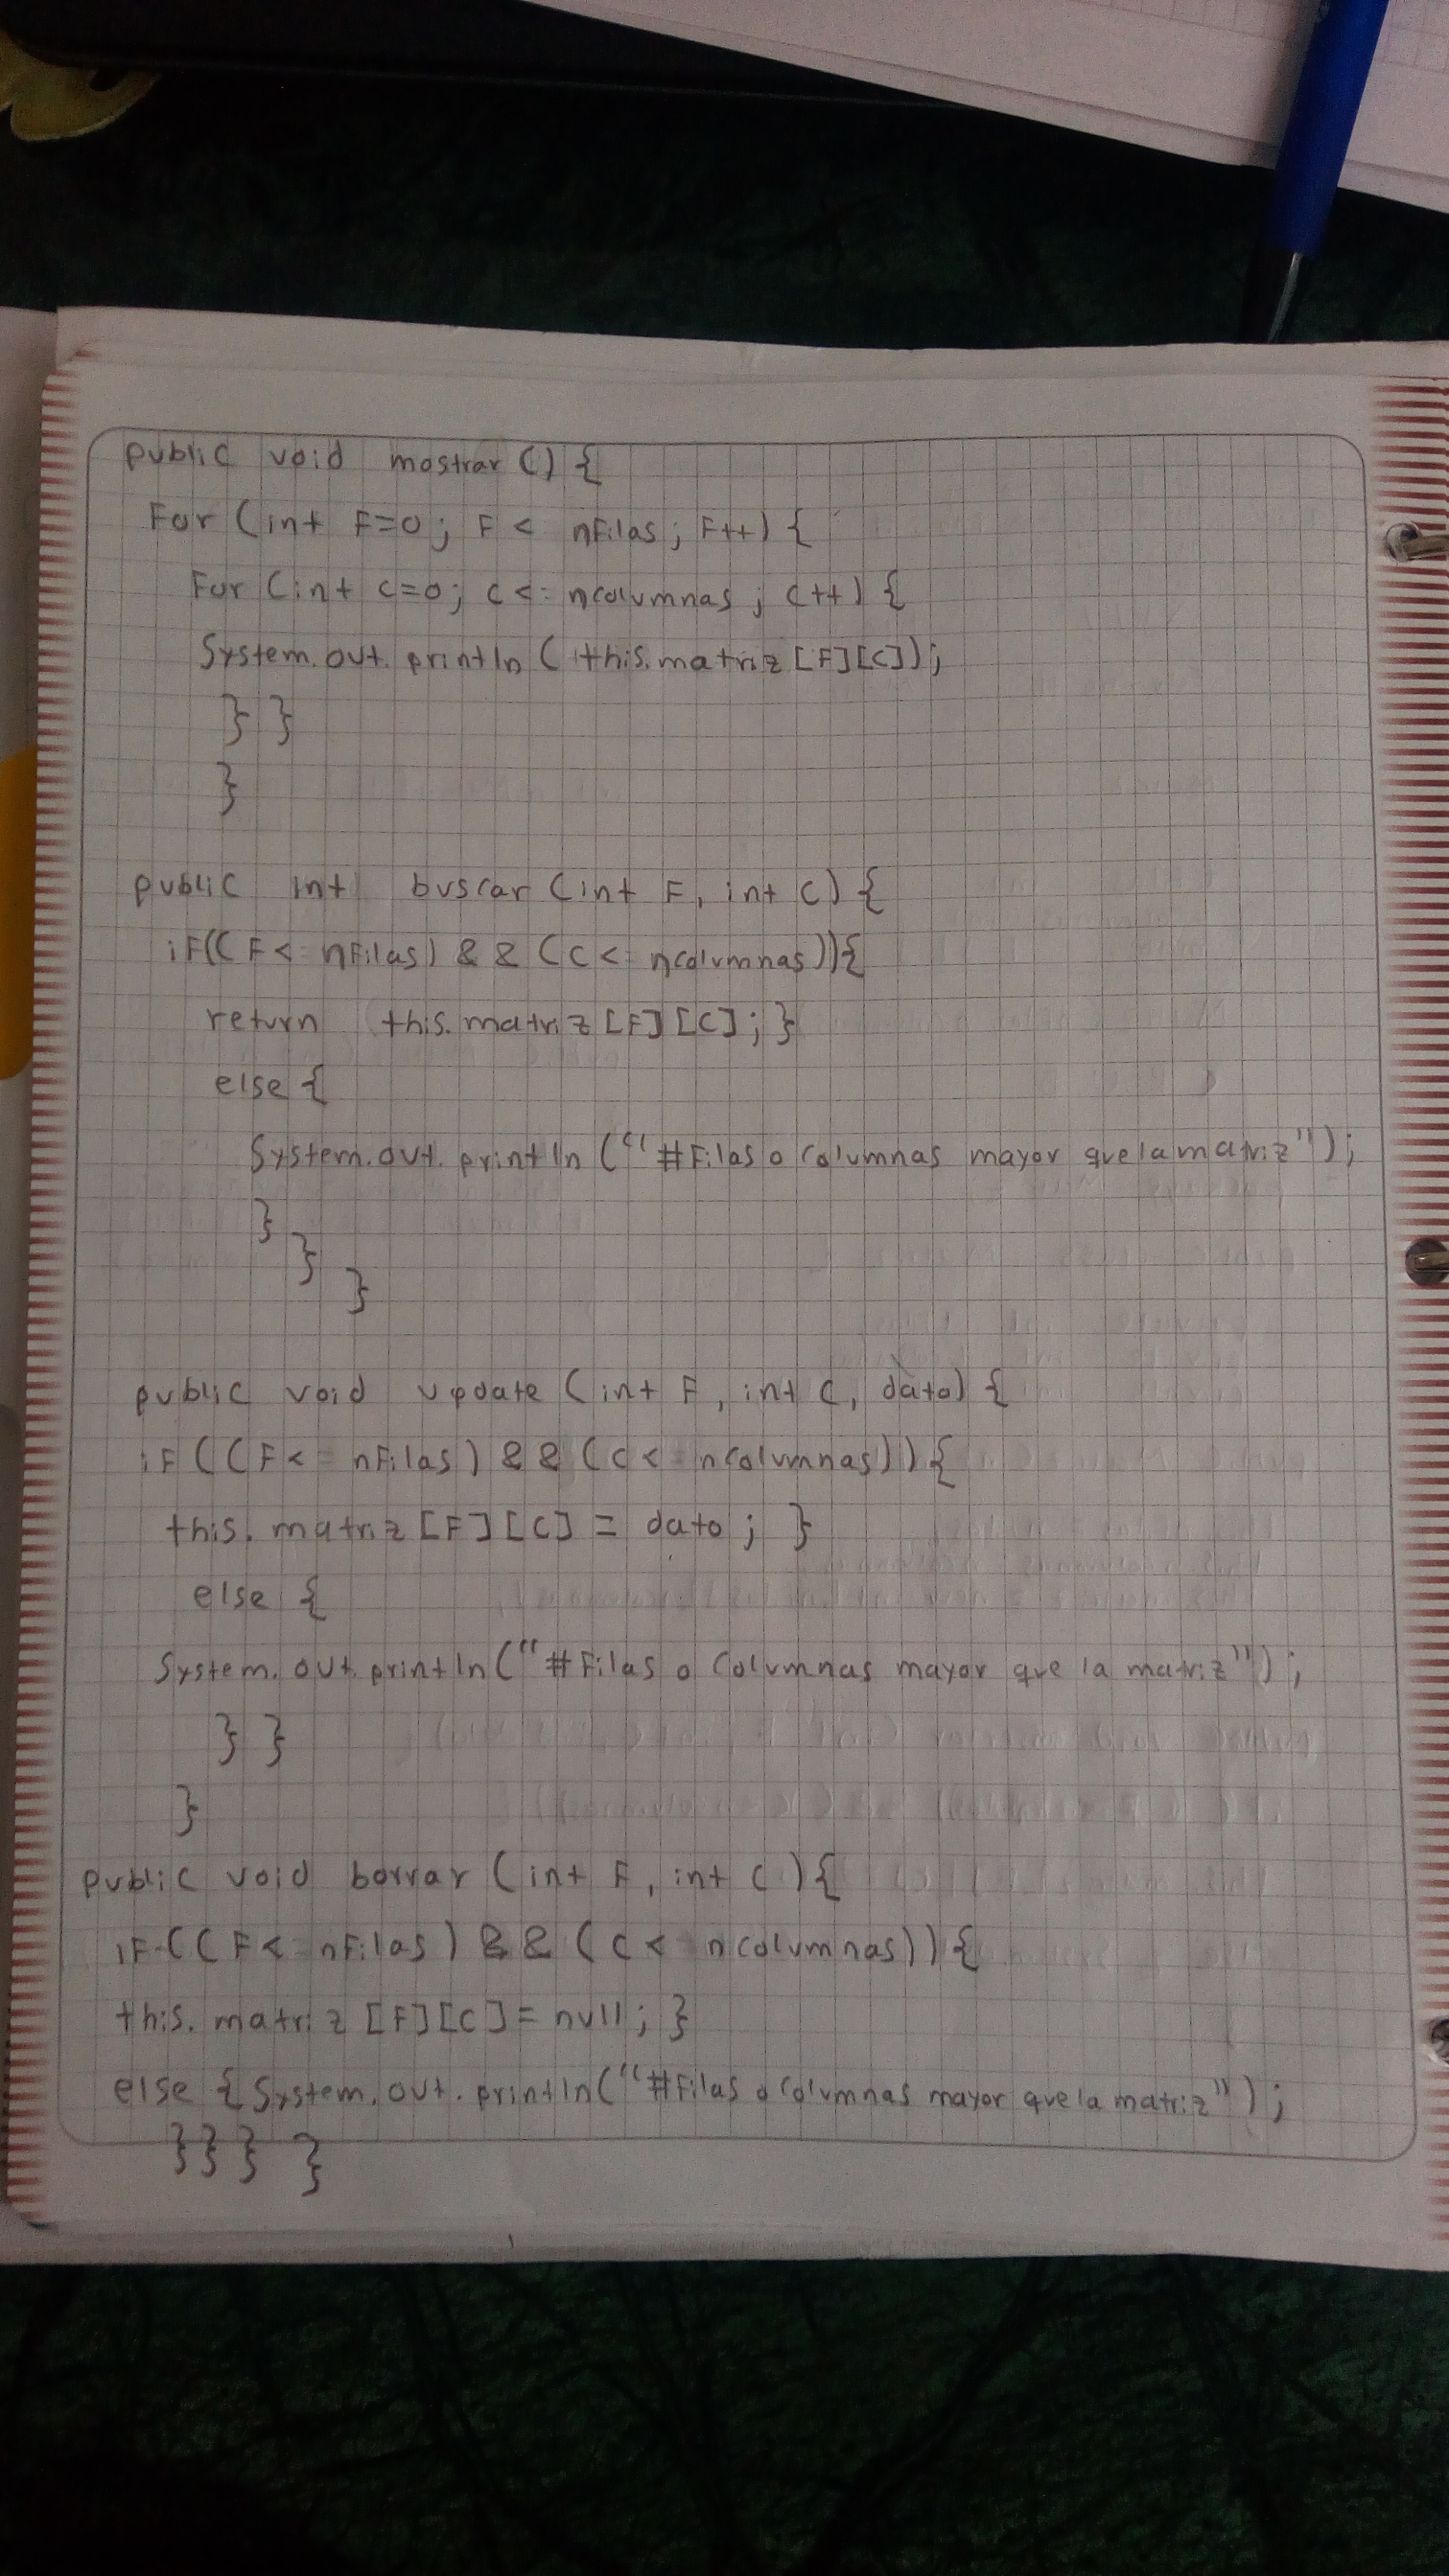 public void mostrar () {
For (int F=0; F < nFilas; F++) {
For (int c=0; c <= ncolumnas; c++) {
System.out.println (this.matriz [F][C]);
} }
}
public int buscar (int F, int C) {
iF((F <= nFilas) && (C <= ncolumnas)){
return this.matriz [F][C]; }
else {
System.out.println ("#Filas o Columnas mayor que la matriz");
}
}
}
public void update (int F, int C, dato) {
iF ((F <= nFilas) && (C <= nColumnas)) {
this.matriz [F][C] = dato; }
else {
System.out.println ("#Filas o Columnas mayor que la matriz");
} }
}
public void borrar (int F, int C) {
iF ((F <= nFilas) && (C <= nColumnas)) {
this.matriz [F][C] = null; }
else {System.out.println("#Filas o Columnas mayor que la matriz");
} } } }